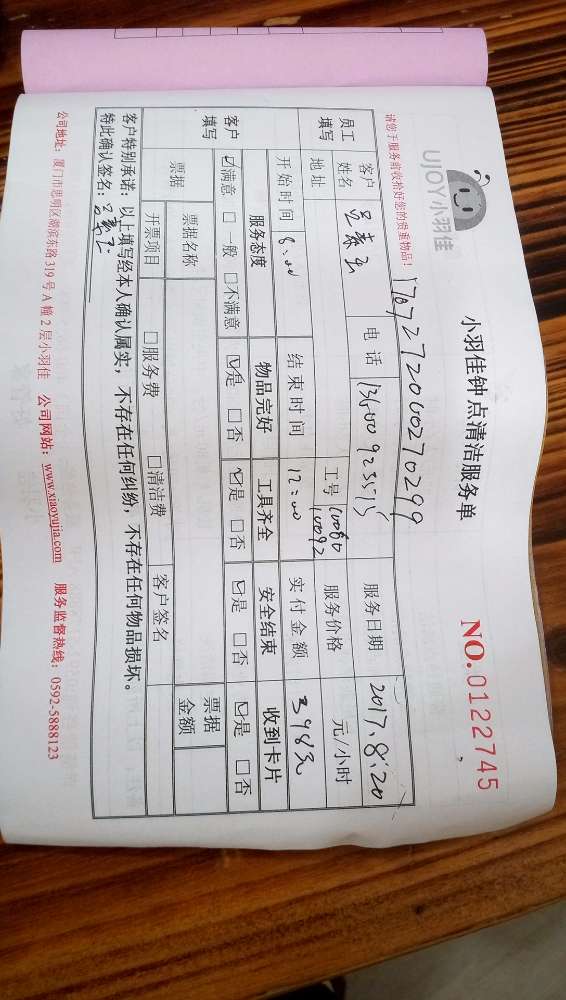 UJOY小羽佳
小羽佳钟点清洁服务单
NO.0122745
请您于服务前收拾好您的贵重物品!
17072720060270299
员工填写
客户姓名
电话
服务日期 2017.8.20
地址
工号 10080 10092
服务价格 元/小时
开始时间 8:00
结束时间 12:00
实付金额 398元
客户填写
服务态度 物品完好 工具齐全 安全结束 收到卡片
☑满意 □一般 □不满意 ☑是 □否 ☑是 □否 ☑是 □否 ☑是 □否
票据 票据名称 客户签名 票据金额
开票项目 □服务费 □清洁费
客户特别承诺:以上填写经本人确认属实,不存在任何纠纷,不存在任何物品损坏。
特此确认签名:
公司地址:厦门市思明区湖滨东路319号A幢2层小羽佳 公司网站:www.xiaoyujia.com 服务监督热线:0592-5888123